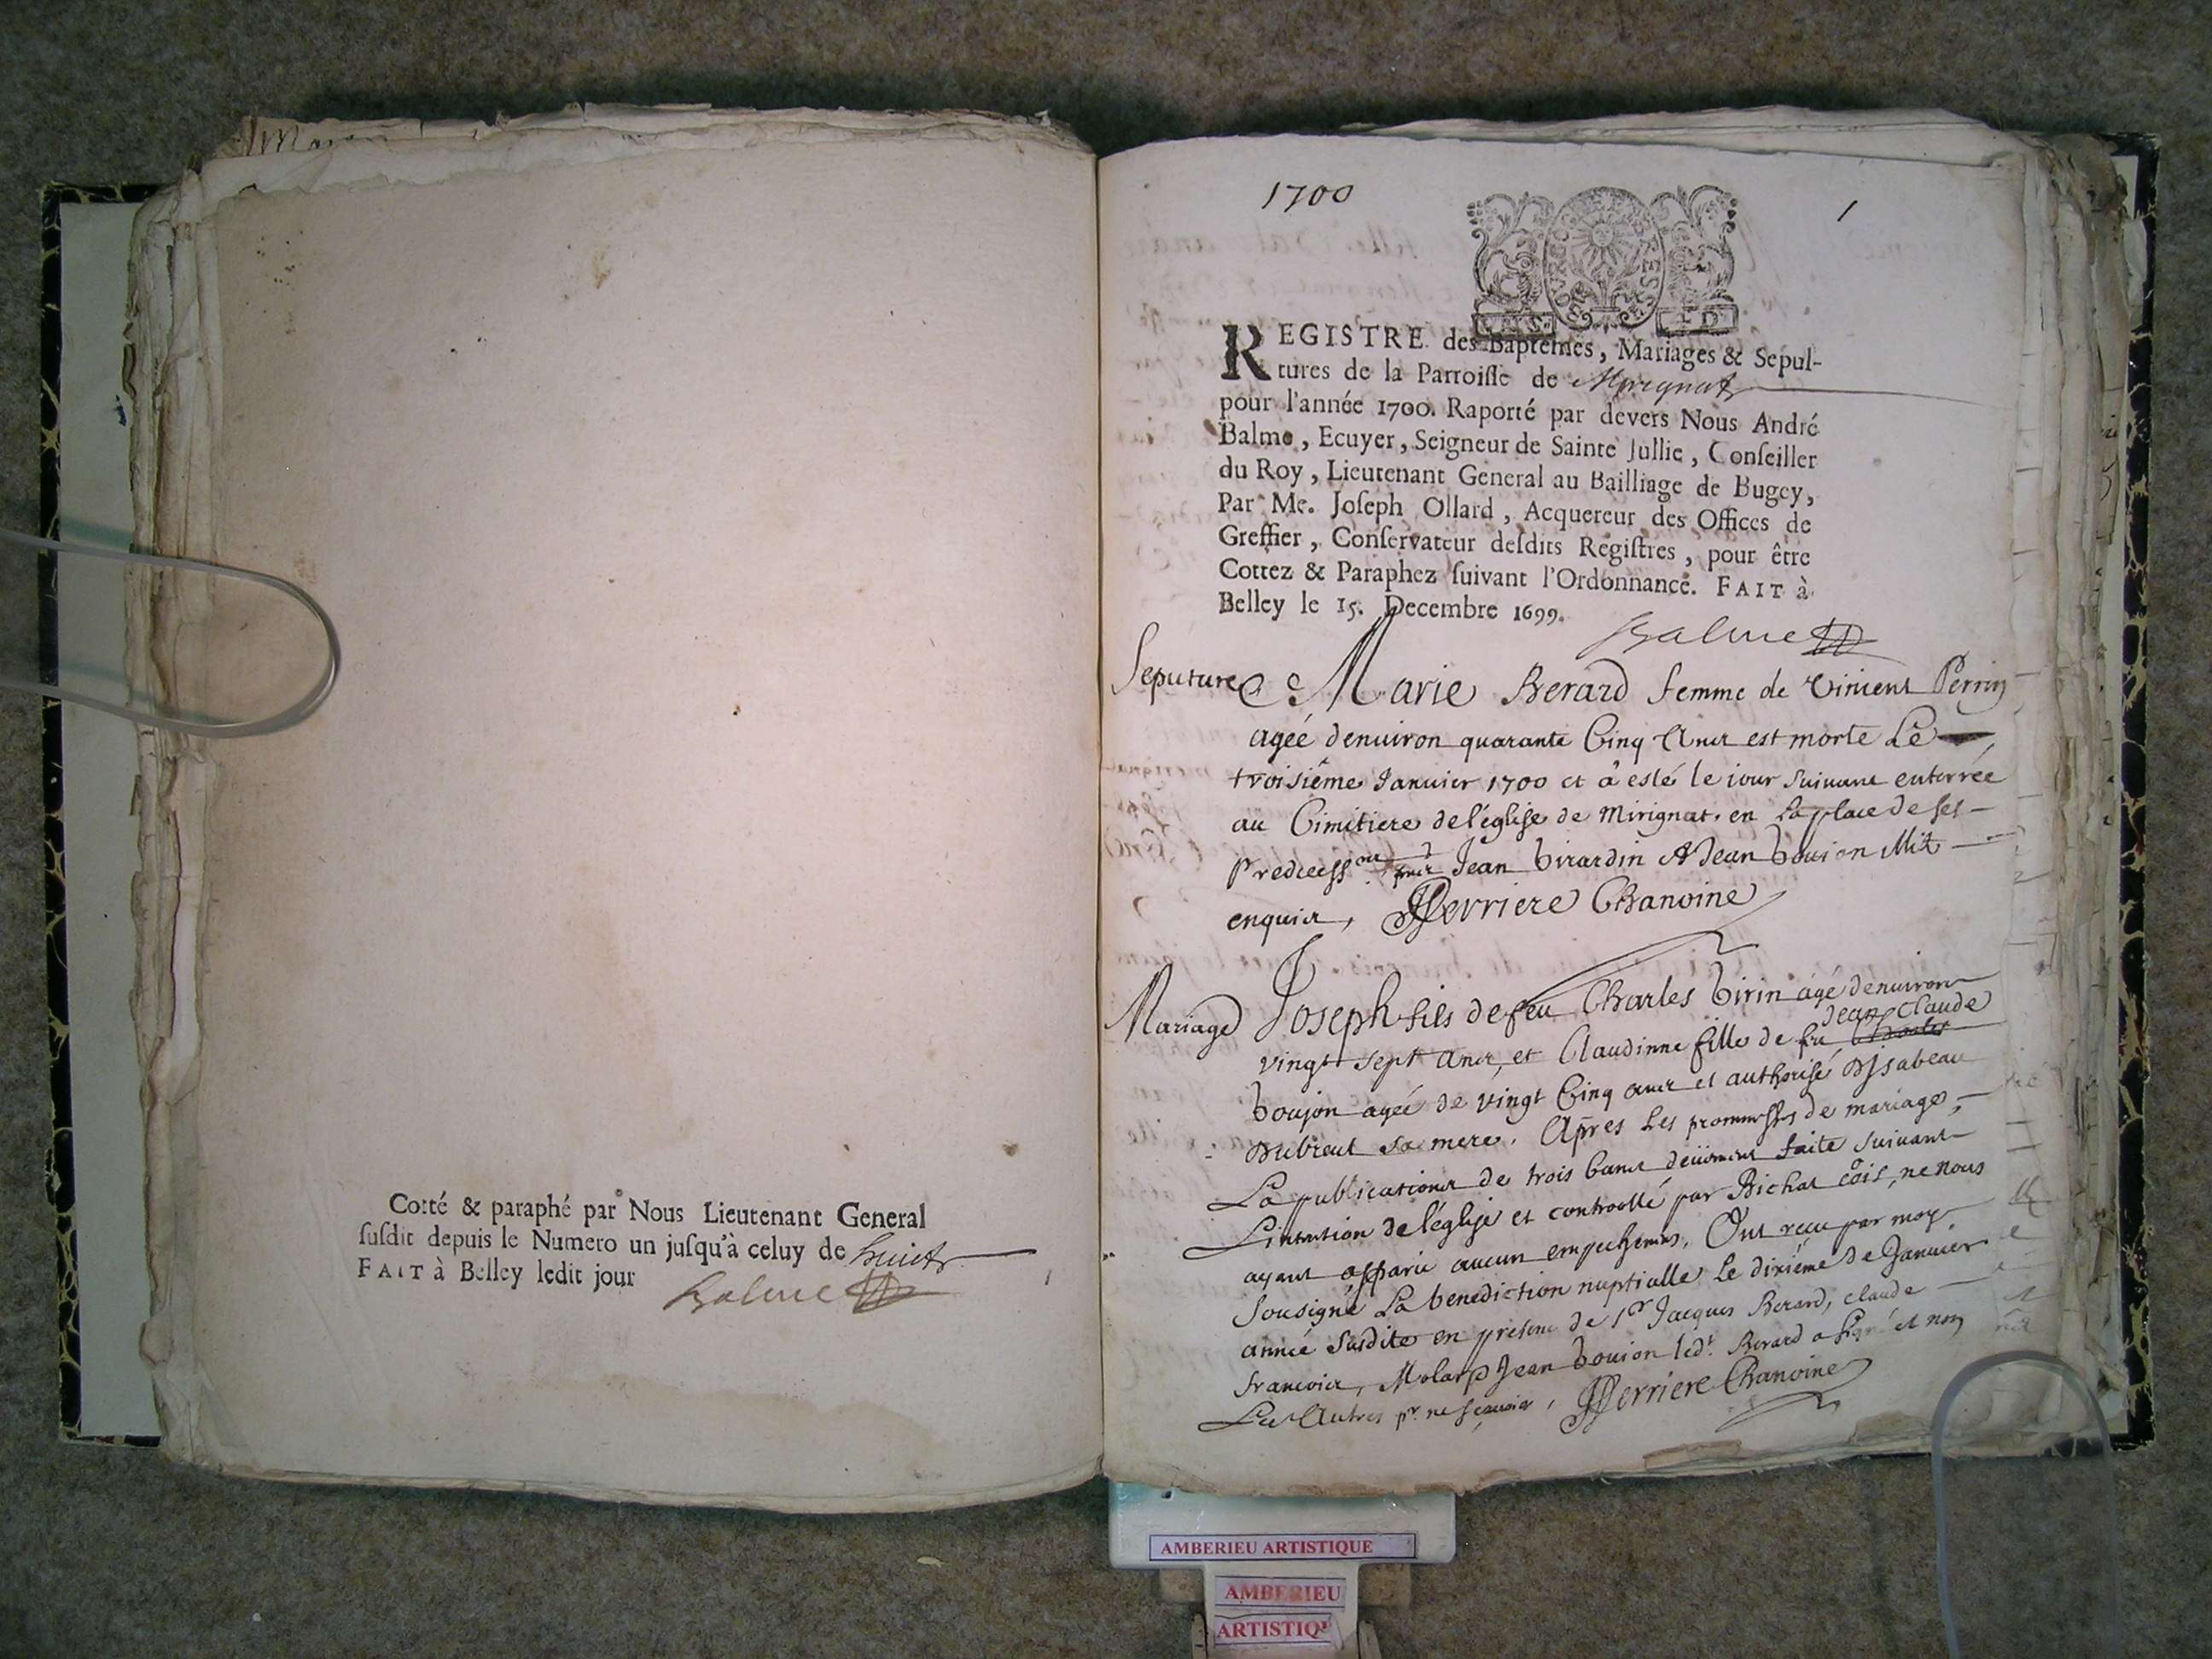 Cotté & paraphé par Nous Lieutenant General
susdit depuis le Numero un jusqu'à celuy de huict
FAIT à Belley ledit jour
Balme
1700
1
REGISTRE des Baptêmes, Mariages & Sepul-
tures de la Parroisse de Mirignat
pour l'année 1700. Raporté par devers Nous André
Balme, Ecuyer, Seigneur de Sainte Jullie, Conseiller
du Roy, Lieutenant General au Bailliage de Bugey,
Par Me. Joseph Ollard, Acquereur des Offices de
Greffier, Conservateur desdits Registres, pour être
Cottez & Paraphez suivant l'Ordonnance. FAIT à
Belley le 15. Decembre 1699.
Balme
Seputure Marie Berard femme de Vincent Perrin
agéé denuiron quarante Cinq Ans est morte Le
troisiéme Januier 1700 et â esté le iour suiuant enterrée
au Cimitiere de l'églize de Mirignat. en La place de ses
Jean Girardin & Jean Goujon
enquis, Perriere Chanoine
Mariage Joseph fils de feu Charles Girin ágé denuiron
Jean Claude
vingt sept ans, et Claudinne fille de fu
Goujon agéé de vingt Cinq ans et authorisé D'Isabeau
Dubreul sa mere. Apres Les prommesses de mariage,
La publications de trois bans deüement faite suiuant
L'intention de l'églize et controollé par Bichat cõis, ne nous
ayant apparu aucun empechemens, Ont receu par moy
Sousigné La benediction nuptialle Le dixiéme de Januier
année susdite en presence de Sr Jacques Berard, Claude
francois, Molard Jean Goujon led.t Berard a signé et non
Les Autres pr. ne scauoir, Perriere Chanoine
AMBERIEU ARTISTIQUE
AMBERIEU
ARTISTIQU